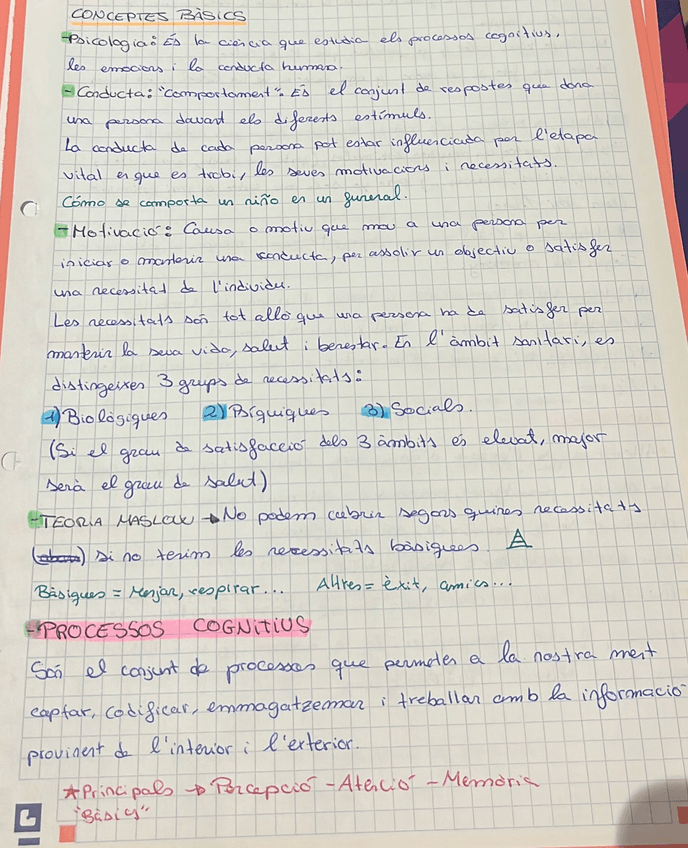 CONCEPTES BÀSICS
-Psicologia: És la ciència que estudia els processos cognitius,
les emocions i la conducta humana.
-Conducta: "comportament". És el conjunt de respostes que dona
una persona davant els diferents estímuls.
La conducta de cada persona pot estar influenciada per l'etapa
vital en que es trobi, les seves motivacions i necessitats.
Cómo se comporta un niño en un funeral.
-Motivació: Causa o motiu que mou a una persona per
iniciar o mantenir una conducta, per assolir un objectiu o satisfer
una necessitat de l'individu.
Les necessitats són tot allò que una persona ha de satisfer per
mantenir la seva vida, salut i benestar. En l'àmbit sanitari, es
distingeixen 3 grups de necessitats:
1) Biològiques 2) Psíquiques 3) Socials.
(Si el grau de satisfacció dels 3 àmbits és elevat, major
serà el grau de salut)
-TEORIA MASLOW → No podem cubrir segons quines necessitats
si no tenim les necessitats bàsiques.
Bàsiques = Menjar, respirar... Altres = èxit, amics...
-PROCESSOS COGNITIUS
Són el conjunt de processos que permeten a la nostra ment
captar, codificar, emmagatzemar i treballar amb la informació
provinent de l'interior i l'exterior.
★Principals → Percepció - Atenció - Memòria
"Bàsics"